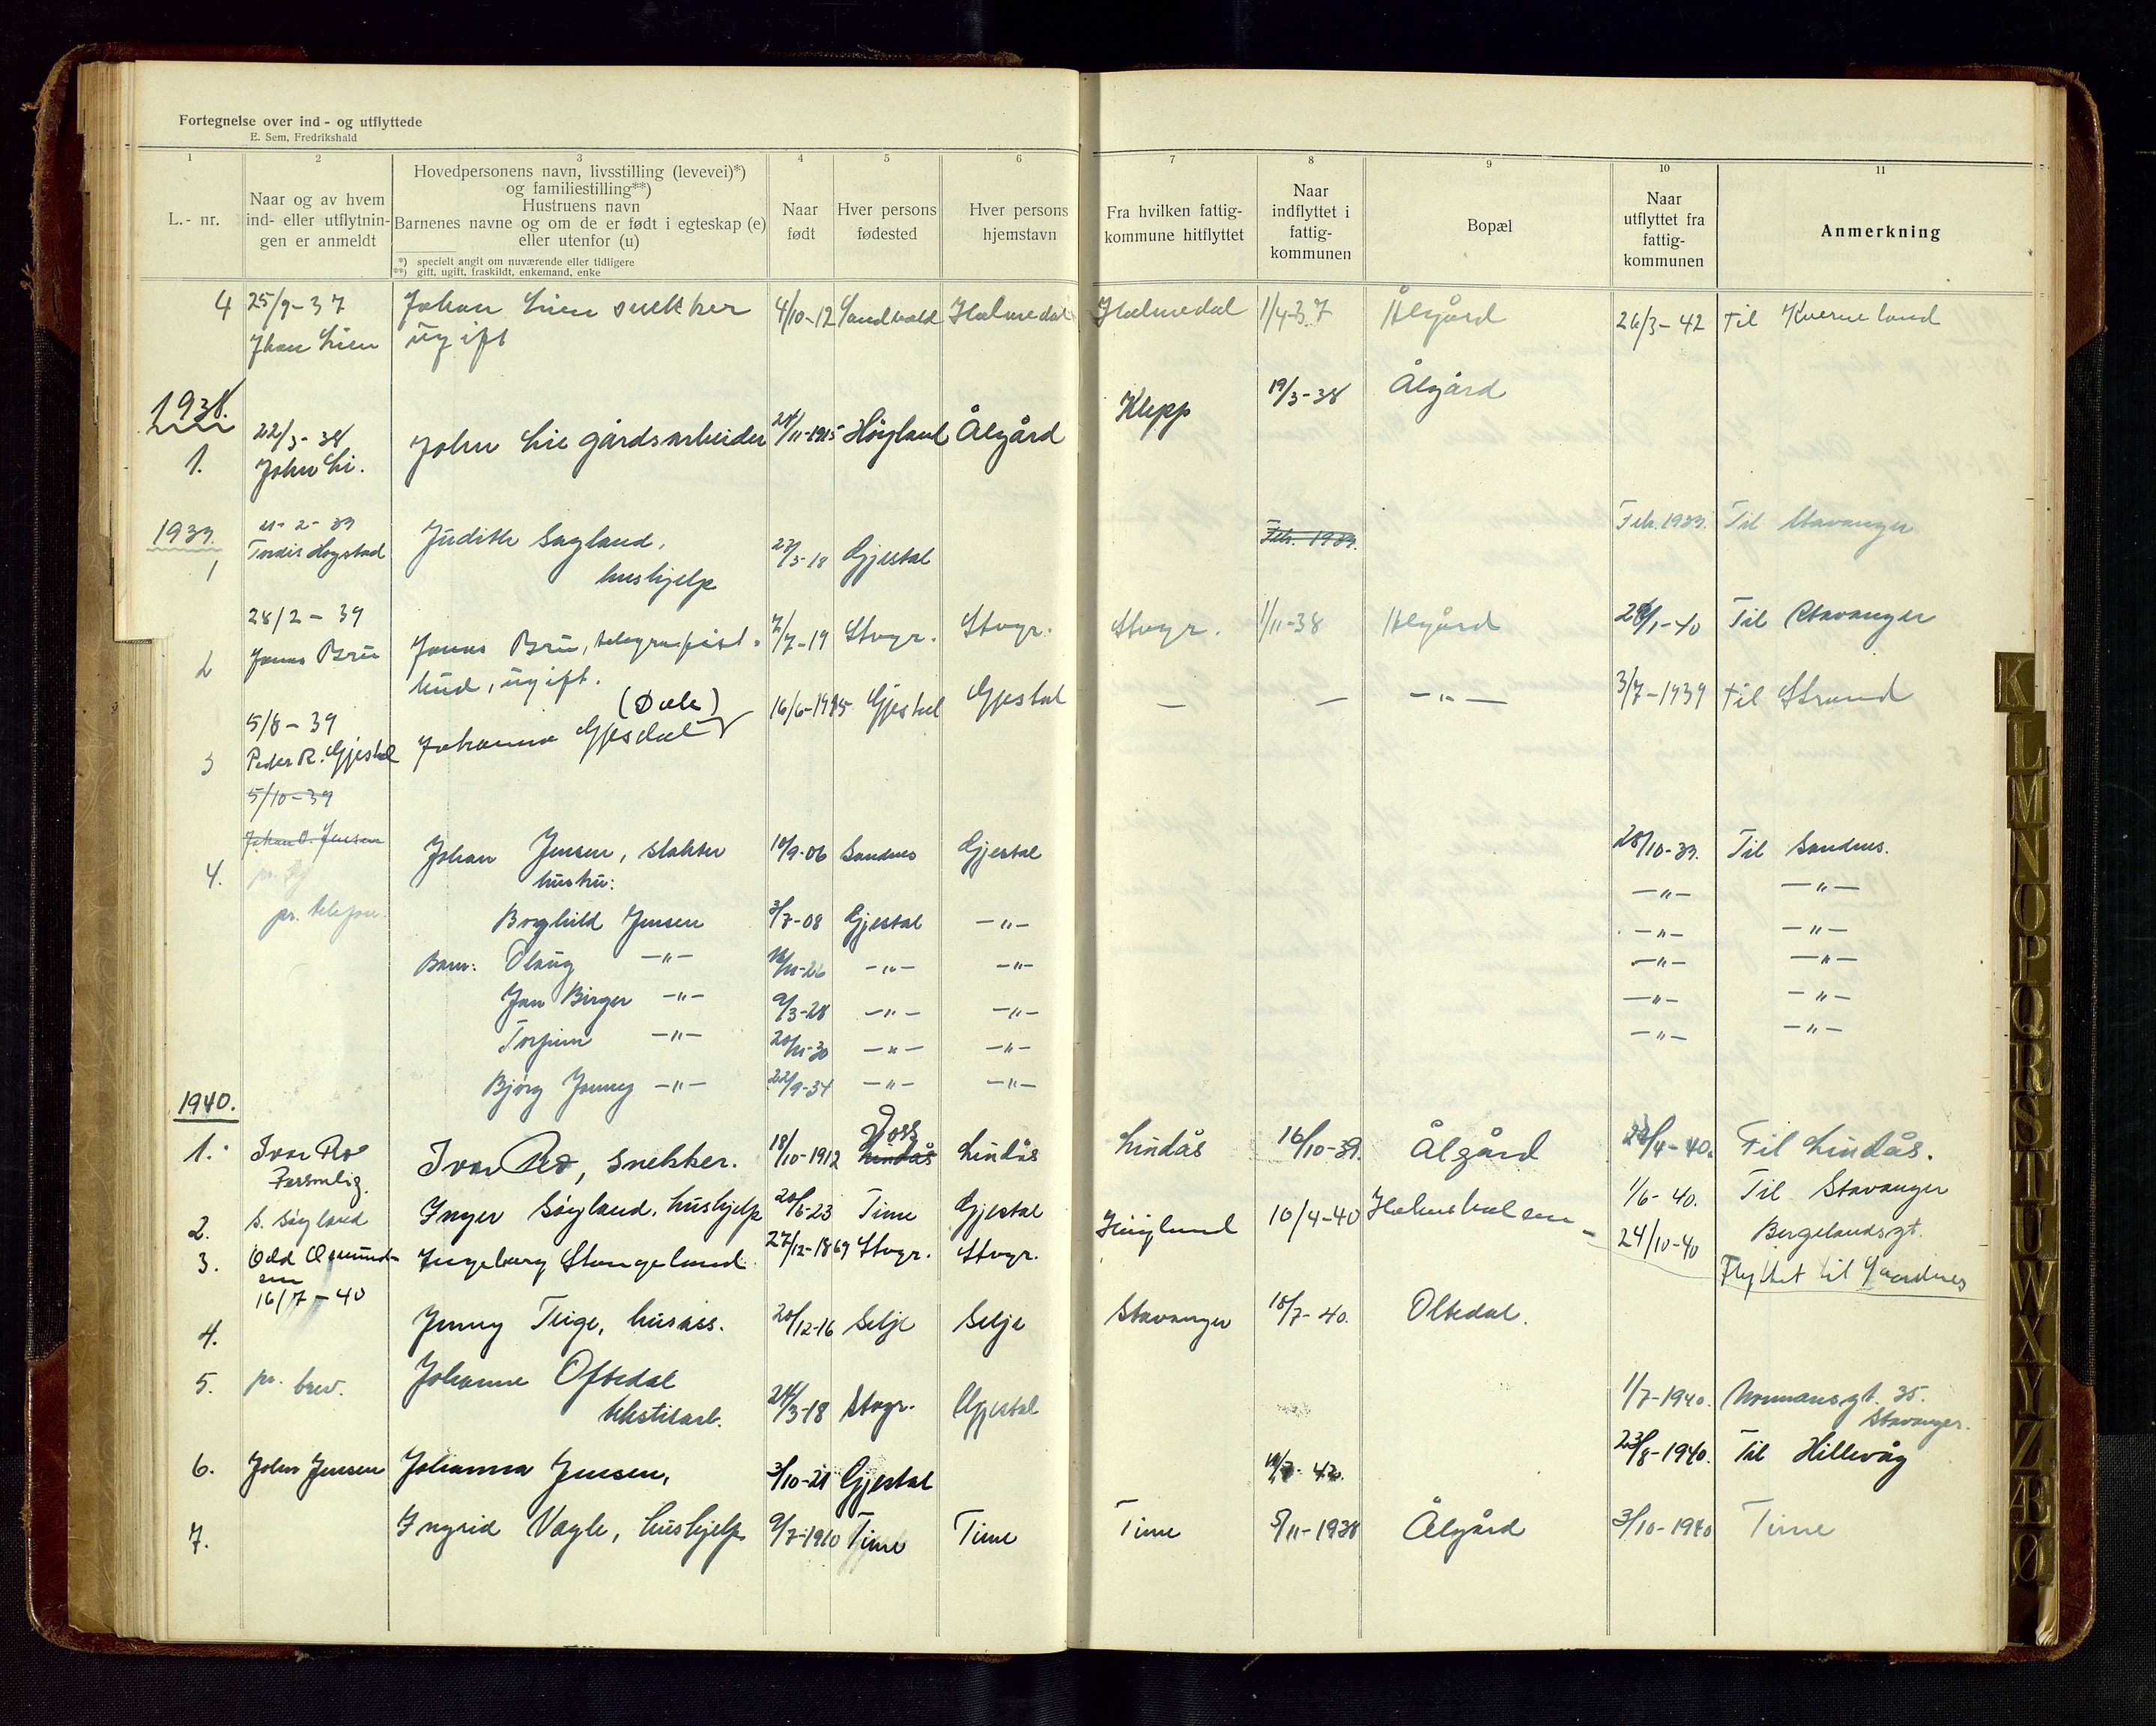 Fortegnelse over ind - og utflyttede
E. Sem, Fredrikshald
1 2 3 4 5 6 7 8 9 10 11
L.- nr.
Naar og av hvem
ind- eller utflytnin-
gen er anmeldt
Hovedpersonens navn, livsstilling (levevei)*)
og familiestilling**)
Hustruens navn
Barnenes navne og om de er født i egteskap (e)
eller utenfor (u)
*) specielt angit om nuværende eller tidligere
**) gift, ugift, fraskildt, enkemand, enke
Naar
født
Hver persons
fødested
Hver persons
hjemstavn
Fra hvilken fattig-
kommune hitflyttet
Naar
indflyttet i
fattig-
kommunen
Bopæl
Naar
utflyttet fra
fattig-
kommunen
Anmerkning
4 25/9-37 Johan Lien snekker 4/10-12 Holmedal Holmedal 1/4-37 Ålgård 26/3-42 til Kverneland
Jhan Lien ugift
1938.
22/3-38 Klepp 19/3-38 Ålgård
1. John Li. John Lie gårdsarbeider /11-1915 Høyland Ålgård
1939. 11-2-39 Judith Sagland, 27/5-18 Gjestal Feb. 1939. Feb. 1939. Til Stavanger
1 Tordis Høgstad hushjelp
28/2-39
2 Jonas Bru Jonas Bru, telegrafist. 7/7-19 Stvgr. Stvgr. Stvgr. 1/11-38 Ålgård /1-40 Til Stavanger
hud, ugift.
5/8-39 (Dale) 16/6-1915 Gjestal Gjestal — — -"- 3/7-1939 til Strand
3 Peder R. Gjestal Johanna Gjesdal
5/10-39
Johan O. Jensen
4. Johan Jensen, slakter 10/9-06 Sandnes Gjestal 28/10-39. Til Sandnes.
hustru: -"- -"-
pr. telefon. Borghild Jensen 3/7-08 Gjestal -"- -"- -"-
Barn: Olaug -"- -26 -"- -"- -"- -"-
Jan Birger -"- 9/3-28 -"- -"- -"- -"-
Torfinn -"- -30 -"- -"- -"- -"-
Bjørg Jenny -"- 22/9-34 -"- -"-
1940.
Voss
1. Ivar Ro Ivar Ro, snekker. 18/10-1912 Lindås Lindås Lindås 16/10-39. Ålgård 22/4-40. Til Lindås.
Personlig.
2. S. Søyland Inger Søyland, hushjelp 20/6-23 Time Gjestal Høyland 10/4-40 1/6-40. Til Stavanger
Bergelandsgt.
3. Odd Osmund- Ingeborg Stangeland 27/12-1869 Stvgr. Stvgr. 24/10-40 Flyttet til Sandnes
sen
16/7-40
4. Jenny Teige, husass. 20/12-16 Selje Selje Stavanger 18/7-40. Oltedal.
5. pr. brev. Johanne Oftedal
tekstilarb. 24/3-18 Stvgr. Gjestal 1/7-1940. Normansgt. 35.
Stavanger.
6. John Jensen Johanna Jensen, 3/10-21 Gjestal 23/8-1940. Til Hillevåg
7. Ingrid Vagle, hushjelp 9/7-1910 Time Time Time 5/11-1938 Ålgård 3/10-1940 Time
K
L
M
N
O
P
Q
R
S
T
U
W
X
Y
Z
Æ
Ø